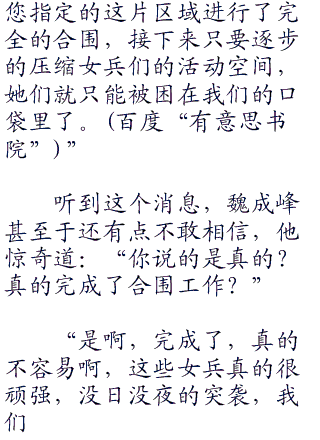 您指定的这片区域进行了完
全的合围，接下来只要逐步
的压缩女兵们的活动空间，
她们就只能被困在我们的口
袋里了。(百度“有意思书
院”)”
听到这个消息，魏成峰
甚至于还有点不敢相信，他
惊奇道：“你说的是真的？
真的完成了合围工作？”
“是啊，完成了，真的
不容易啊，这些女兵真的很
顽强，没日没夜的突袭，我
们